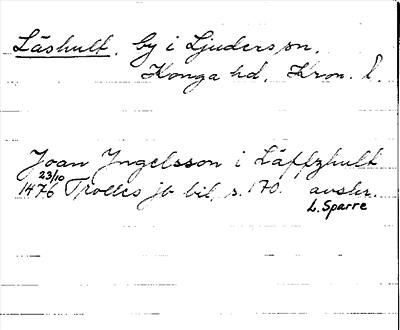 Läshult. by i Ljuders sn.
Konga hd. Kron. l.
Joan Yngelsson i Läffzhult
23/10
1476 Trolles jb bil. s. 170. avskr.
L. Sparre